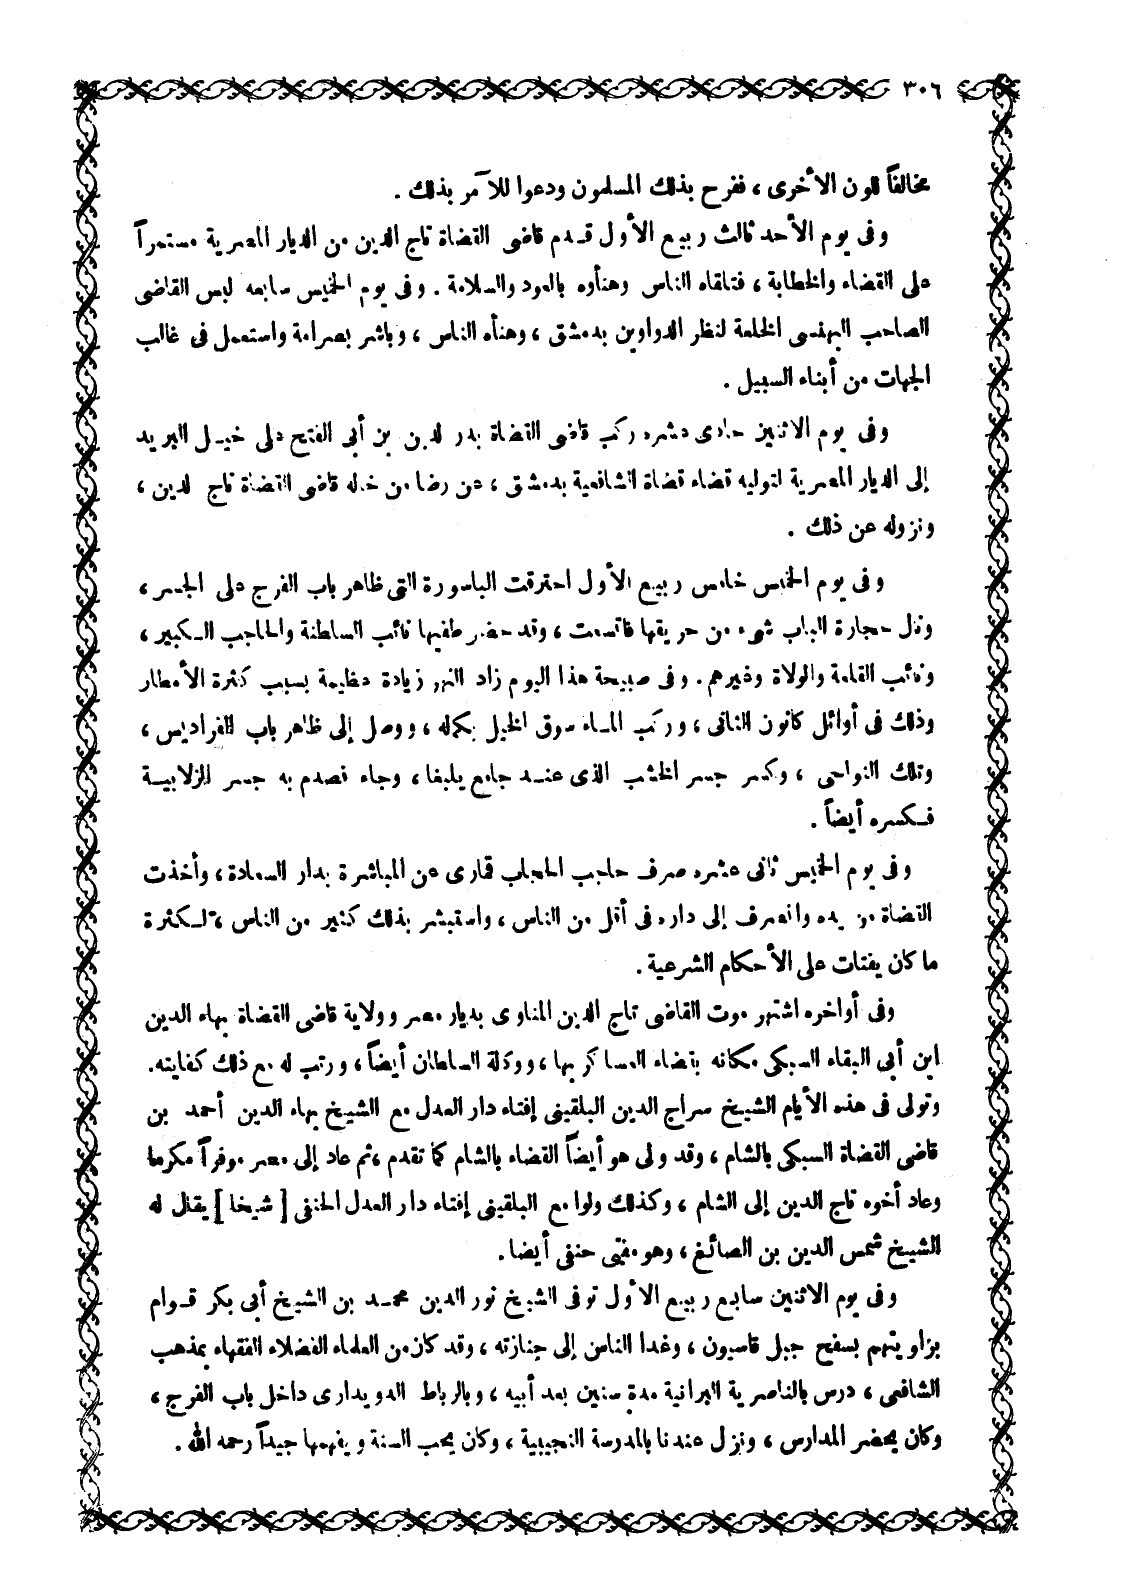 ٣٠٦
مخالفاً للون الأخرى ، ففرح بذلك المسلمون ودعوا للآمر بذلك .
وفى يوم الأحد ثالث ربيع الأول قدم قاضى القضاة تاج الدين من الديار المصرية مستمراً
على القضاء والخطابة ، فتلقاه الناس وهنأوه بالعود والسلامة . وفى يوم الخميس سابعه لبس القاضى
الصاحب البهنسى الخلعة لنظر الدواوين بدمشق ، وهنأه الناس ، وباشر بصرامة واستعمل فى غالب
الجهات من أبناء السبيل .
وفى يوم الاثنين حادى عشره ركب قاضى القضاة بدر الدين بن أبى الفتح على خيل البريد
إلى الديار المصرية لتوليه قضاء قضاة الشافعية بدمشق ، عن رضا من خاله قاضى القضاة تاج الدين ،
ونزوله عن ذلك .
وفى يوم الخميس خامس ربيع الأول احترقت الباسورة التى ظاهر باب الفرج على الجسر ،
ونال حجارة الباب شىء من حريقها فاتسعت ، وقد حضر طفيها نائب السلطنة والحاجب الكبير ،
ونائب القلعة والولاة وغيرهم . وفى صبيحة هذا اليوم زاد النهر زيادة عظيمة بسبب كثرة الأمطار
وذلك فى أوائل كانون الثانى ، وركب الماء سوق الخيل بكماله ، ووصل إلى ظاهر باب الفراديس ،
وتلك النواحى ، وكسر جسر الخشب الذى عند جامع يلبغا ، وجاء فصدم به جسر الزلابية
فكسره أيضاً .
وفى يوم الخميس ثانى عشره صرف حاجب الحجاب قمارى عن المباشرة بدار السعادة ، وأخذت
القضاة من يده وانصرف إلى داره فى أقل من الناس ، واستبشر بذلك كثير من الناس ، لكثرة
ما كان يفتات على الأحكام الشرعية .
وفى أواخره اشتهر موت القاضى تاج الدين المناوى بديار مصر وولاية قاضى القضاة بهاء الدين
ابن أبى البقاء السبكى مكانه بقضاء العساكر بها ، ووكالة السلطان أيضاً ، ورتب له مع ذلك كفايته.
وتولى فى هذه الأيام الشيخ سراج الدين البلقينى إفتاء دار العدل مع الشيخ بهاء الدين أحمد بن
قاضى القضاة السبكى بالشام ، وقد ولى هو أيضاً القضاء بالشام كما تقدم ، ثم عاد إلى مصر موفراً مكرما
وعاد أخوه تاج الدين إلى الشام ، وكذلك ولوا مع البلقينى إفتاء دار العدل الحنفى [ شيخا ] يقال له
الشيخ شمس الدين بن الصائغ ، وهو مفتى حنفى أيضا.
وفى يوم الاثنين سابع ربيع الأول توفى الشيخ نور الدين محمد بن الشيخ أبى بكر قوام
بزاويتهم بسفح جبل قاسيون ، وغدا الناس إلى جنازته ، وقد كان من العلماء الفضلاء الفقهاء بمذهب
الشافعى ، درس بالناصرية البرانية مدة سنين بعد أبيه ، وبالرباط الدويدارى داخل باب الفرج ،
وكان يحضر المدارس ، ونزل عندنا بالمدرسة النجيبية ، وكان يحب السنة ويفهمها جيداً رحمه الله .